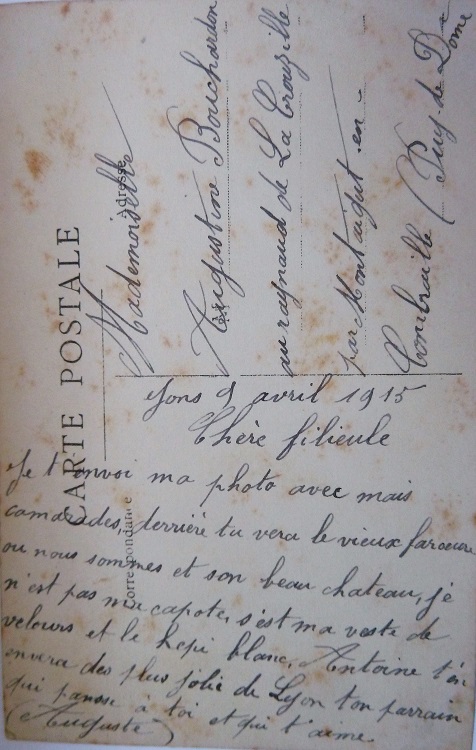 CARTE POSTALE
Correspondance
Adresse
Mademoiselle
Augustine Bouchardon
au raynaud de La Crouzille
par Montaigut -en-
Combraille (Puy-de-Dome
Jons 9 avril 1915
Chère filieule
Je t envoi ma photo avec mais
camarades, derrière tu vera le vieux
ou nous sommes et son beau chateau, je
n'est pas ma capote, s'est ma veste de
velours et le kepi blanc, Antoine t'en
envera des plus jolie de Lyon ton parrain
qui panse à toi et qui t'aime
(Auguste)